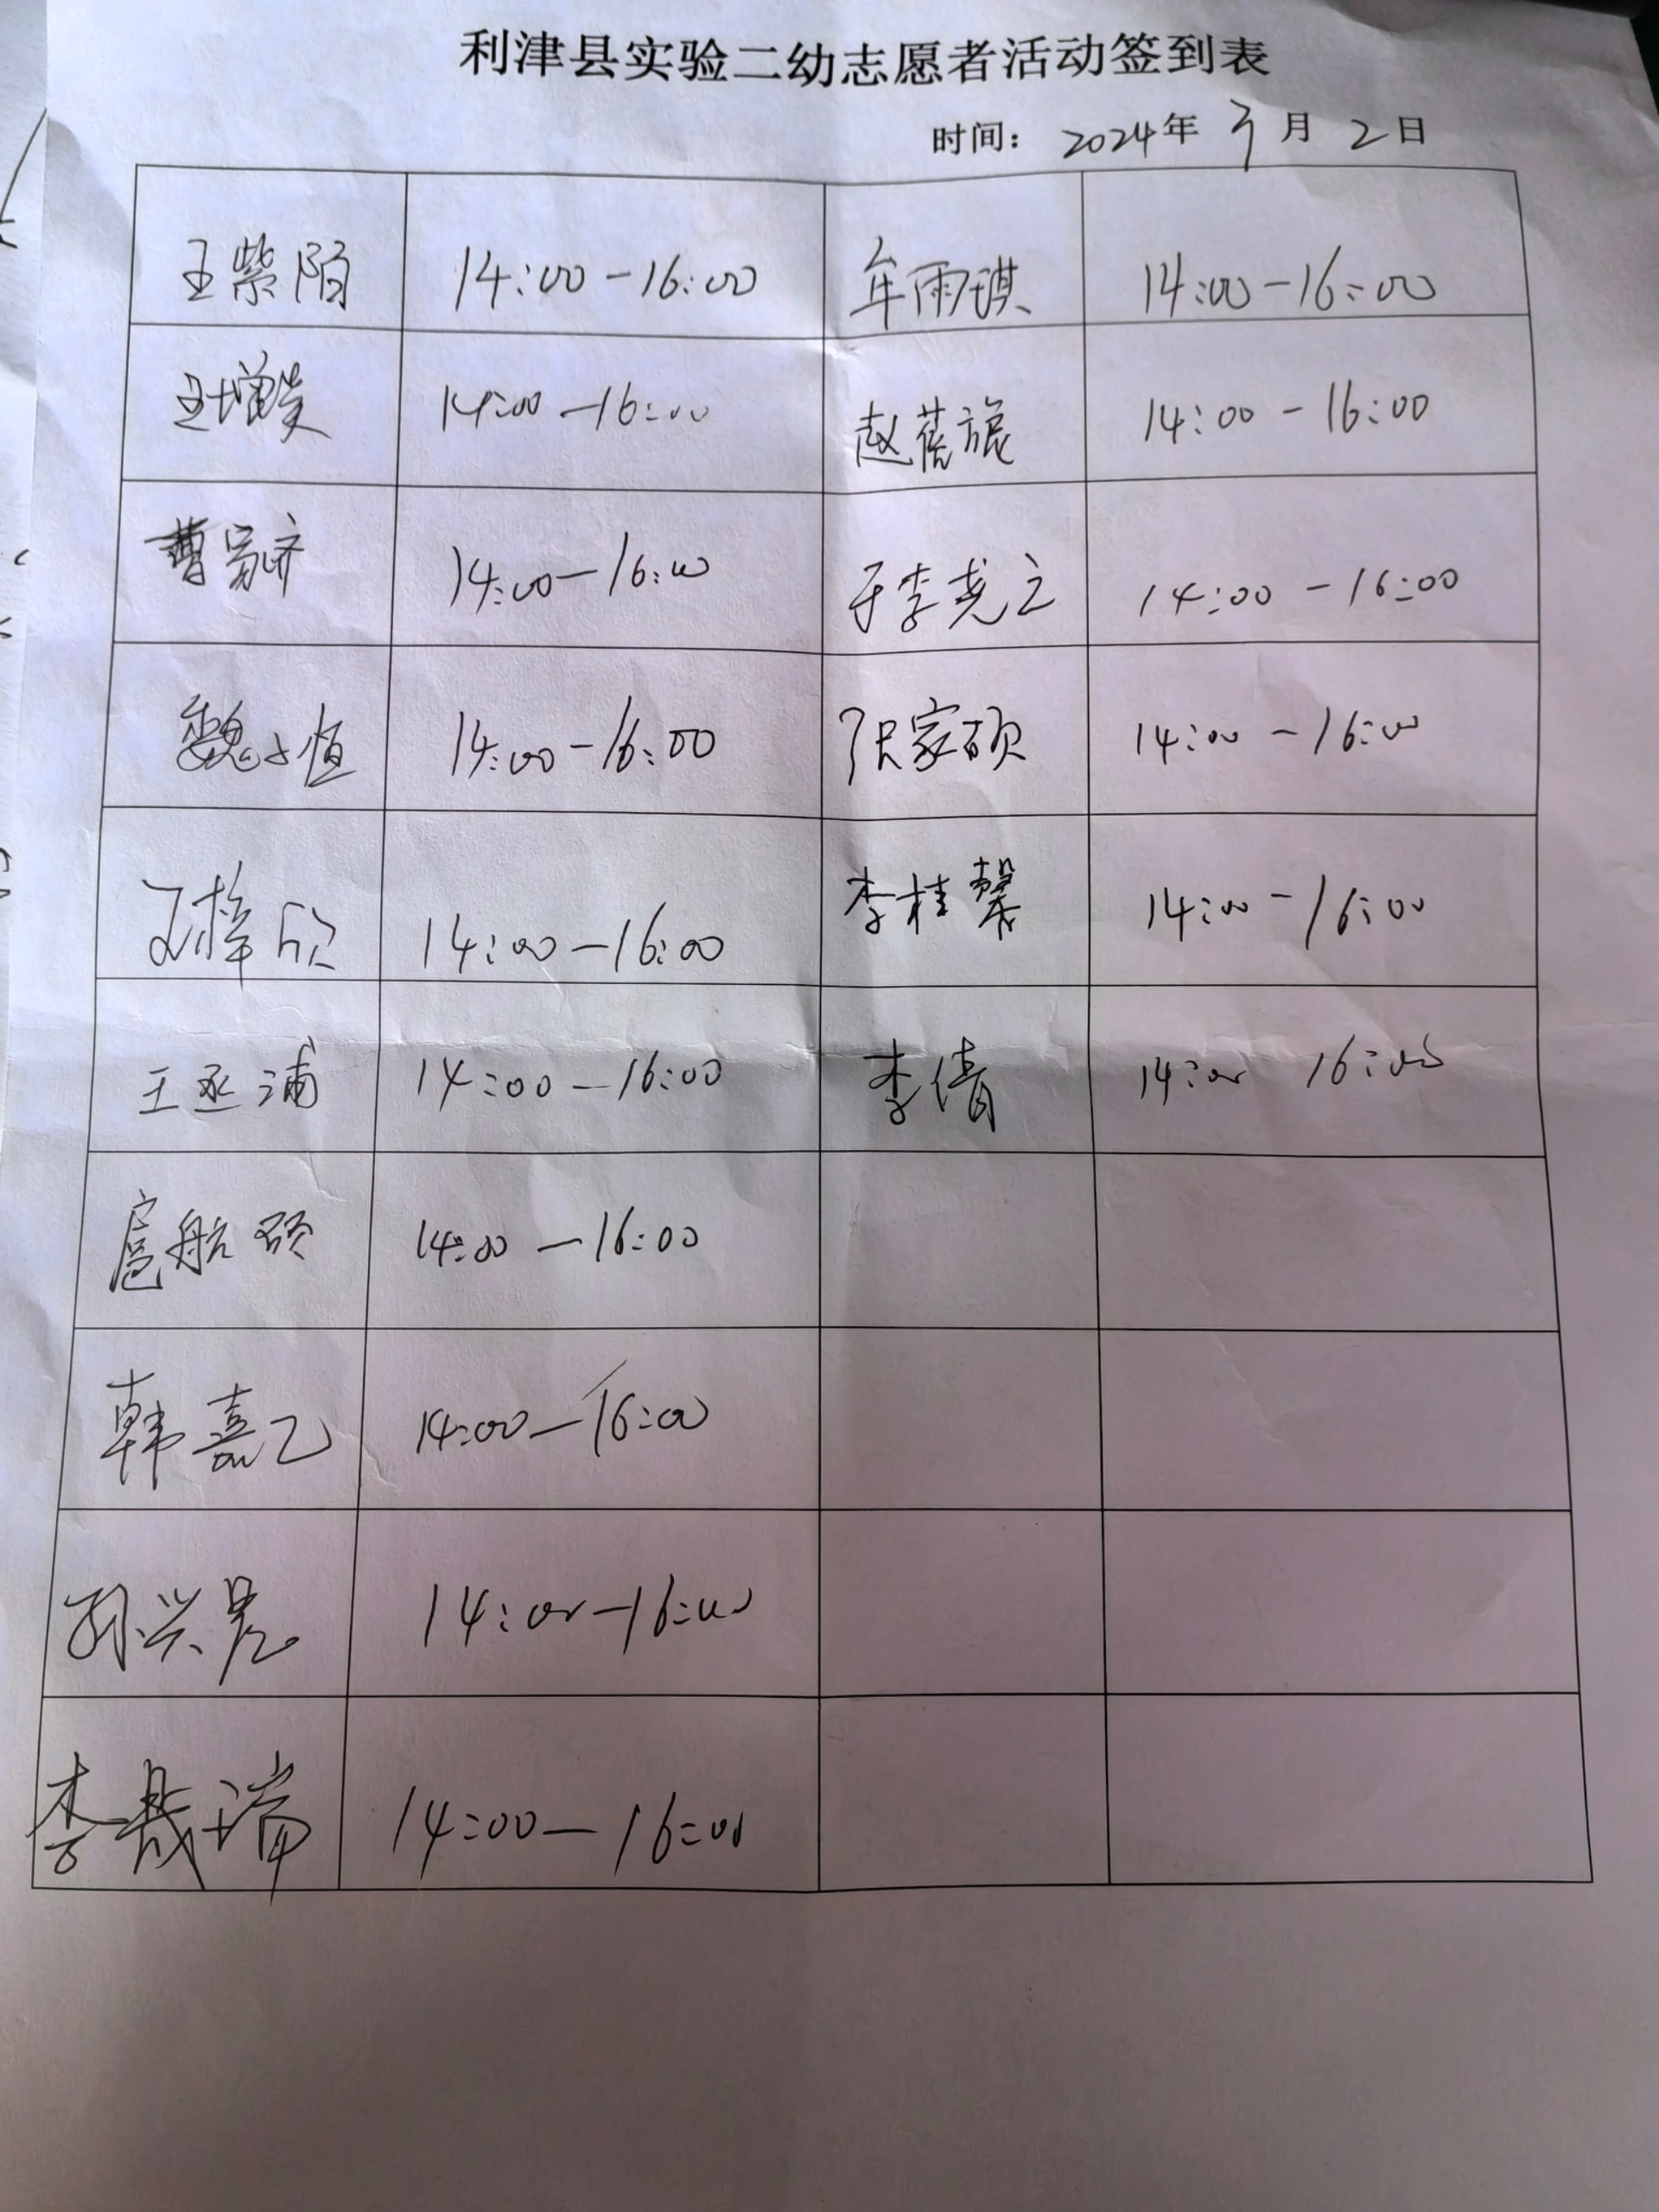 利津县实验二幼志愿者活动签到表
时间： 2024年 3月 2日
王紫陌 14:00-16:00 牟雨琪 14:00-16:00
王增 14:00-16:00 赵蓓旎 14:00-16:00
曹家齐 14:00-16:00 于李尧立 14:00-16:00
魏子恒 14:00-16:00 张家硕 14:00-16:00
王梓欣 14:00-16:00 李桂馨 14:00-16:00
王丞浦 14:00-16:00 李倩 14:00 16:00
扈航硕 14:00-16:00
韩嘉乙 14:00-16:00
孙兴 14:00-16:00
李晟瑞 14:00-16:00